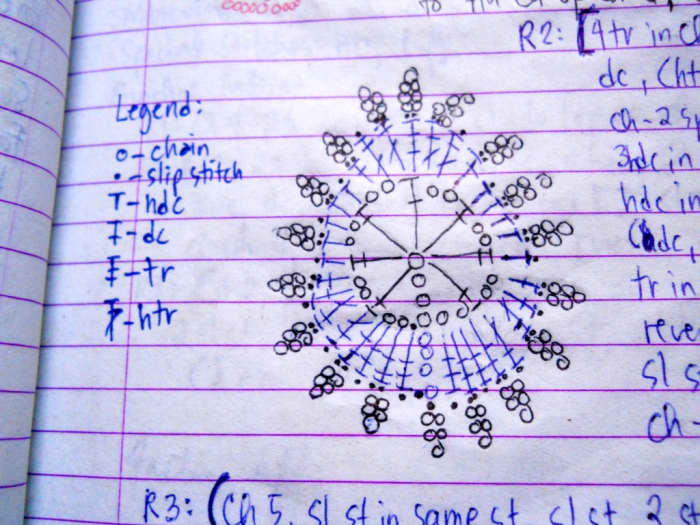 R2: [4tr in ch
dc, (ht
ch-2 sp
3hdc in
hdc in
(hdc,
tr in
reve
sl s
ch-
Legend:
o-chain
•-slip stitch
T-hdc
-dc
-tr
-htr
R3: (Ch 5, sl st in same st, sl st